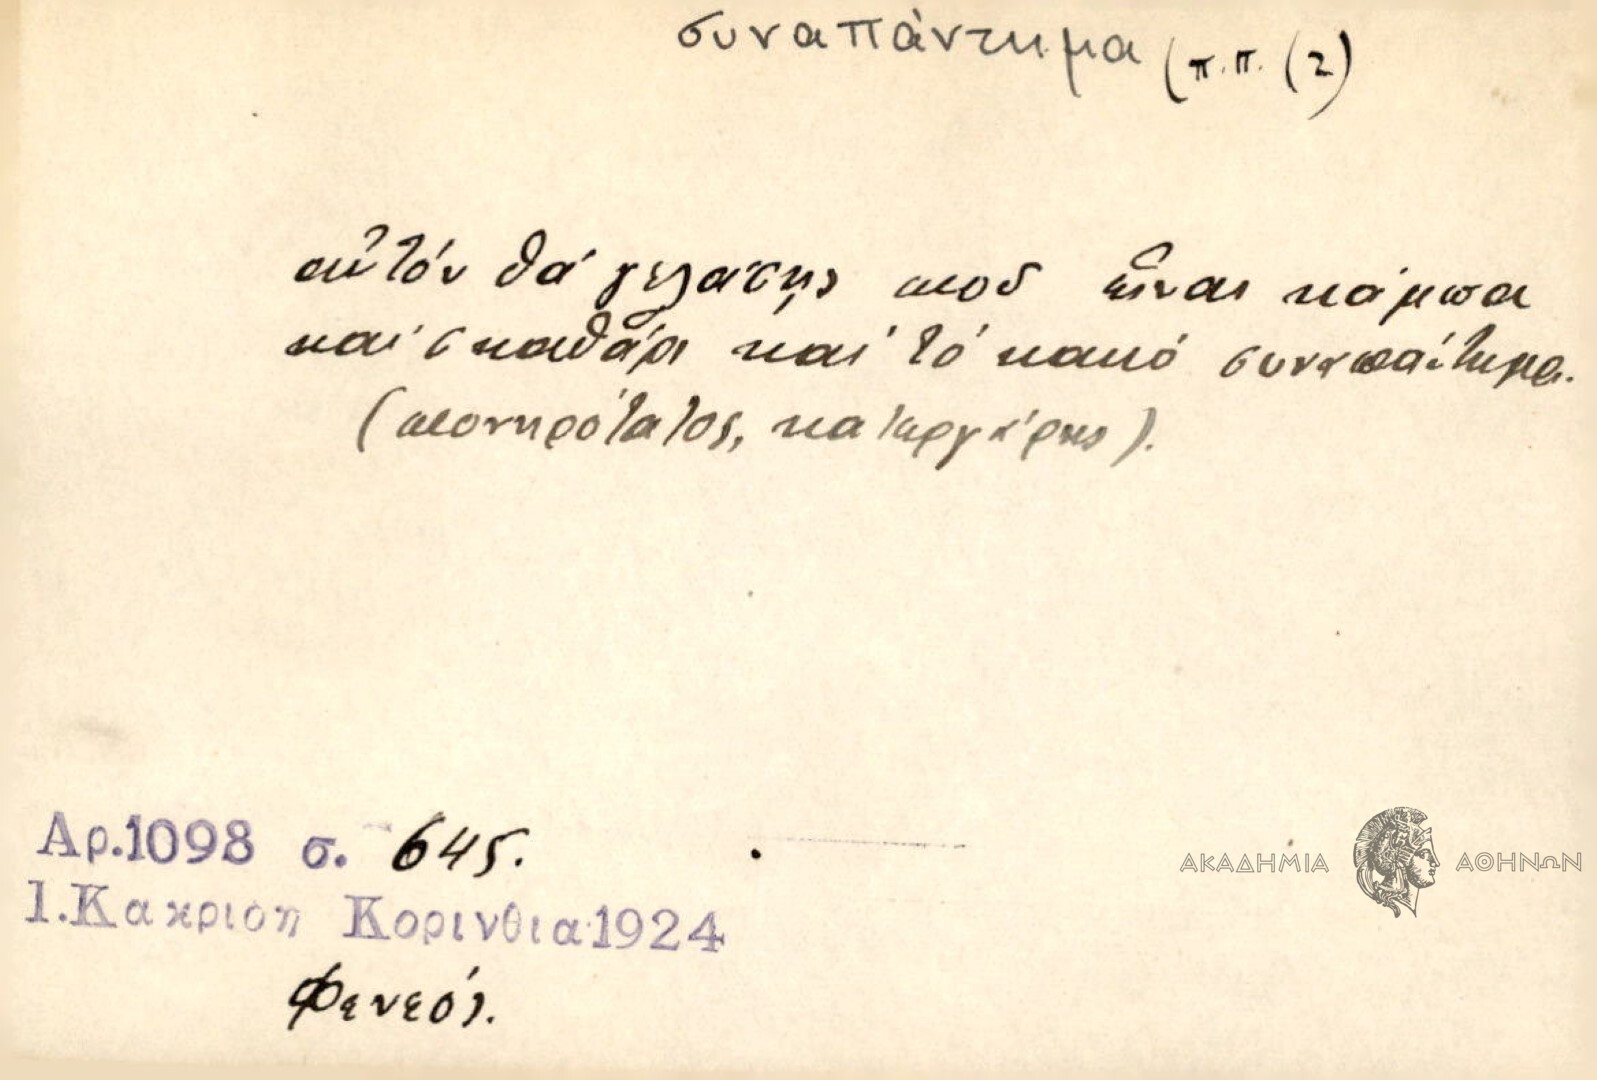 συναπάντημα (π.π. (2)
αὐτόν θά γελάσῃς ποὺ εἶναι κάμπα
καί σκαθάρι καί τό κακό συναπάντημα.
(πονηρότατος, κατεργάρης).
Αρ.1098 σ. 645.
Ι.Κακριδη Κορινθια 1924
Φενεός.
ΑΚΑΔΗΜΙΑ ΑΘΗΝΩΝ